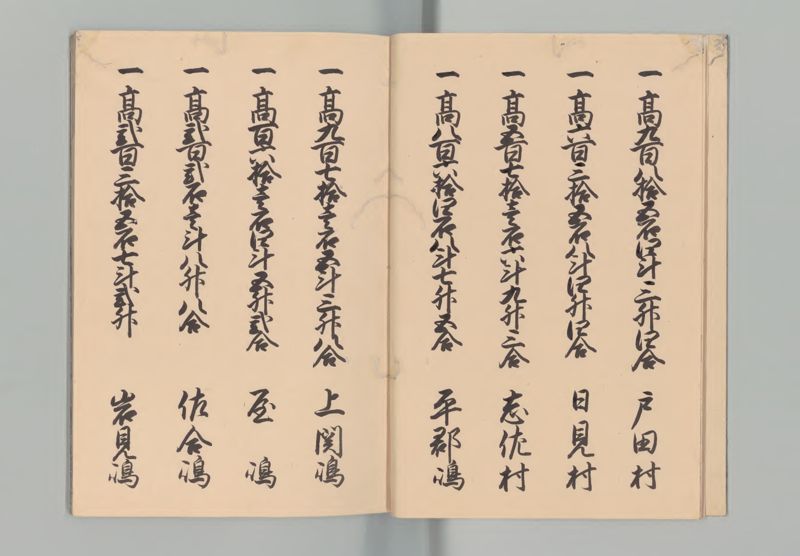 一 高九百八拾五石四斗三升四合 戸田村
一 高六百三拾五石八斗四升四合 日見村
一 高五百七拾壱石六斗九升三合 志佐村
一 高八百六拾四石八斗七升五合 平郡嶋
一 高九百七拾壱石五斗三升八合 上関嶋
一 高百六拾壱石四斗五升弐合 屋嶋
一 高弐百弐石壱斗八升八合 佐合嶋
一 高弐百三拾五石七斗弐升 岩見嶋